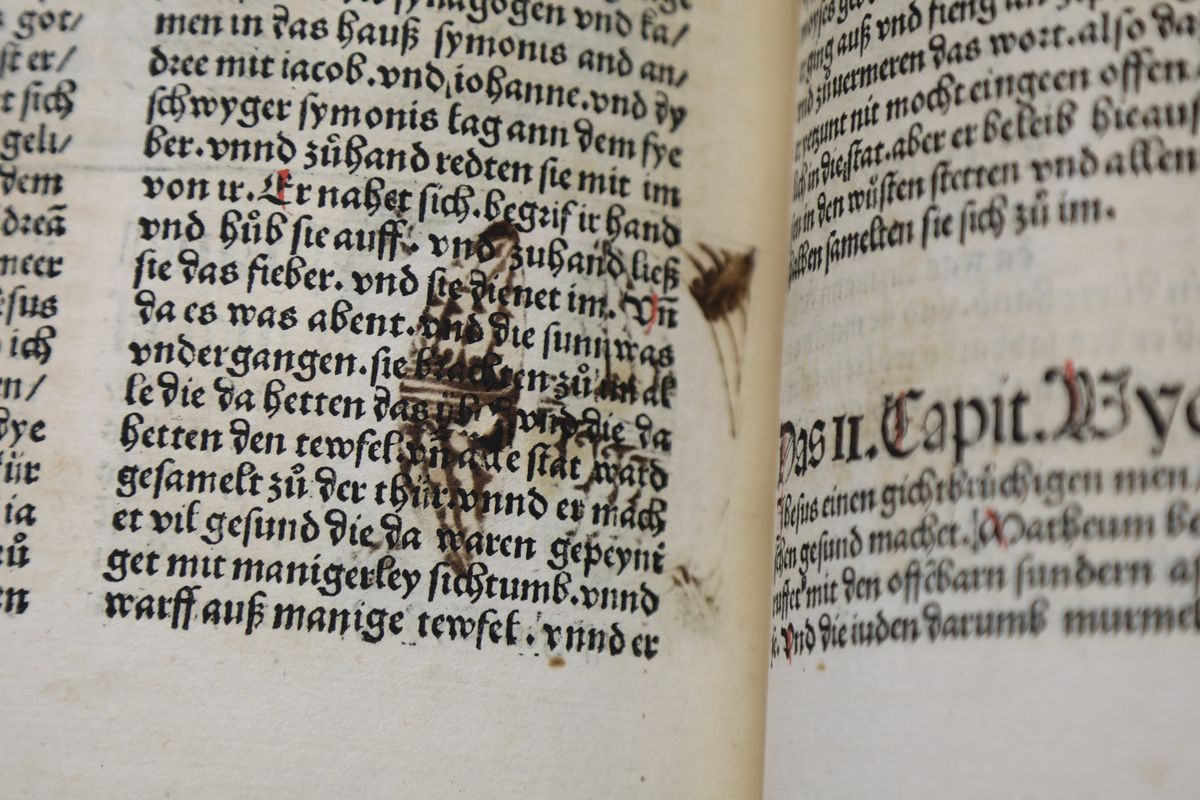 got/
st er/
t sich
geli/
dem
dreã
meer
esus
ich
en/
dye
für
ia
zů
en
synagogen vnd ka/
men in das hauß symonis and an/
dree mit iacob.vnd iohanne.vnd dy
schwyger symonis lag ann dem fye
ber.vnnd zůhand redten sie mit im
von ir.Er nahet sich.begrif ir hand
vnd hůb sie auff. vnd zuhand ließ
sie das fieber. vnd sie dienet im. Vñ
da es was abent.vnd die sunn was
vndergangen.sie brachten zů im al
le die da hetten das vbel vnd die da
hetten den tewfel.vñ alle stat ward
gesamelt zů der thür.vnnd er mach
et vil gesund die da waren gepeyni
get mit manigerley sichtumb.vnnd
warff auß manige tewfel.vnnd er
ging auß vnd fieng an
zůuermeren das wort.also da
yetzunt nit mocht eingeen offen
lich in die stat.aber er beleib hieauß
en in den wůsten stetten vnd allen
halben samelten sie sich zů im.
Das II. Capit. Wye
Jhesus einen gichtbrüchigen men/
schen gesund machet. Matheum be
ruffet mit den offẽbarn sundern as
se. Vnd die iuden darumb murmel